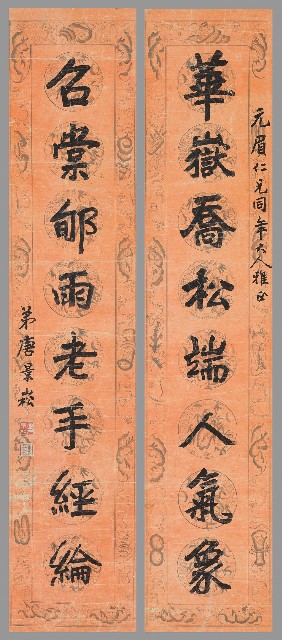 元眉仁兄同年大人雅正
華嶽喬松端人氣象
召棠郇雨老手經綸
弟唐景崧